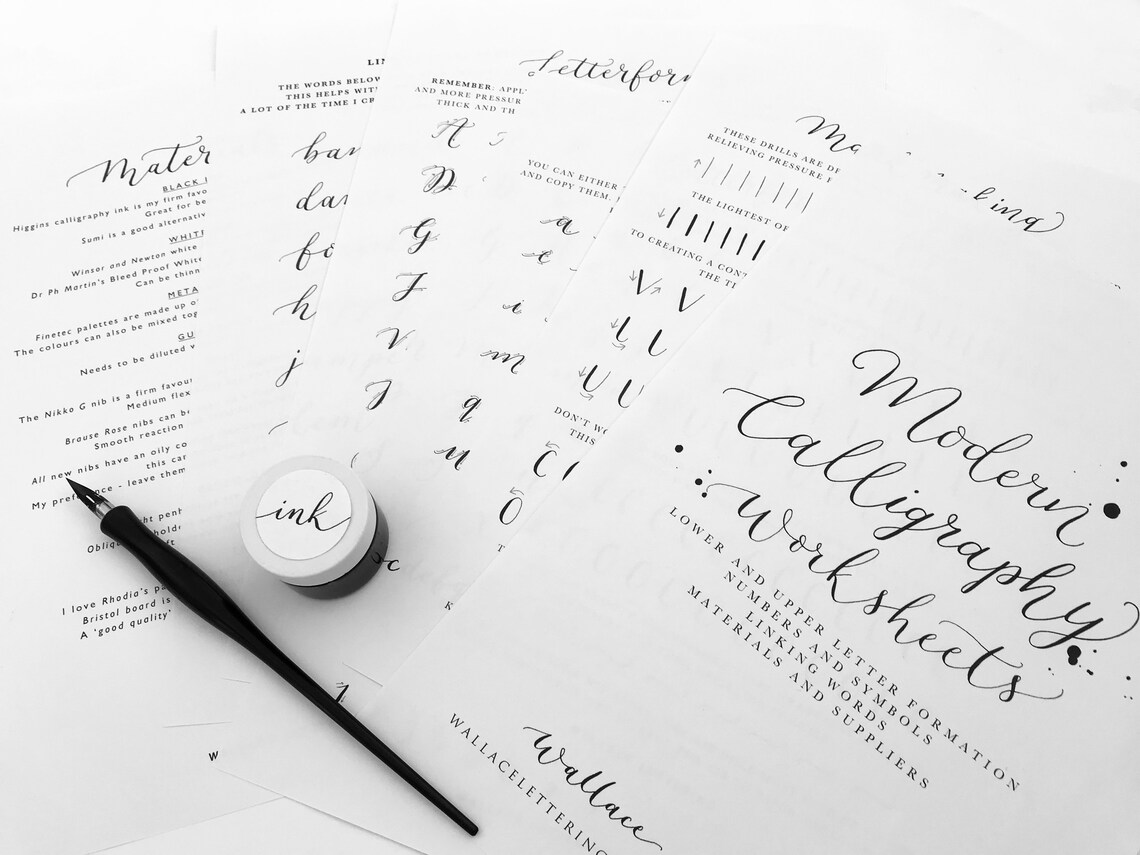 Mater
BLACK I
Higgins calligraphy ink is my firm favo
Great for be
Sumi is a good alternativ
WHITE
Winsor and Newton white
Dr Ph Martin's Bleed Proof White
Can be thinn
META
Finetec palettes are made up o
The colours can also be mixed tog
GU
Needs to be diluted w
The Nikko G nib is a firm favou
Medium flex
Brause Rose nibs can be
Smooth reaction
All new nibs have an oily co
this car
My preference - leave them
ht pent
Obliq holde
ft
I love Rhodia's pa
Bristol board is
A 'good quality'
W
LIN
THE WORDS BELOW
THIS HELPS WITH
A LOT OF THE TIME I CR
ban
dan
fo
h
j
ink
Letterform
REMEMBER: APPL
AND MORE PRESSUR
THICK AND TH
A
D
G
J
YOU CAN EITHER
AND COPY THEM.
a
e
i
m
q
u
THESE DRILLS ARE DE
RELIEVING PRESSURE F
THE LIGHTEST OF
TO CREATING A CON
THE TI
V V
U U
DON'T WO
THIS
O
Ma
ling
Modern
Calligraphy
Worksheets
LOWER AND UPPER LETTER FORMATION
NUMBERS AND SYMBOLS
LINKING WORDS
MATERIALS AND SUPPLIERS
Wallace
WALLACELETTERING